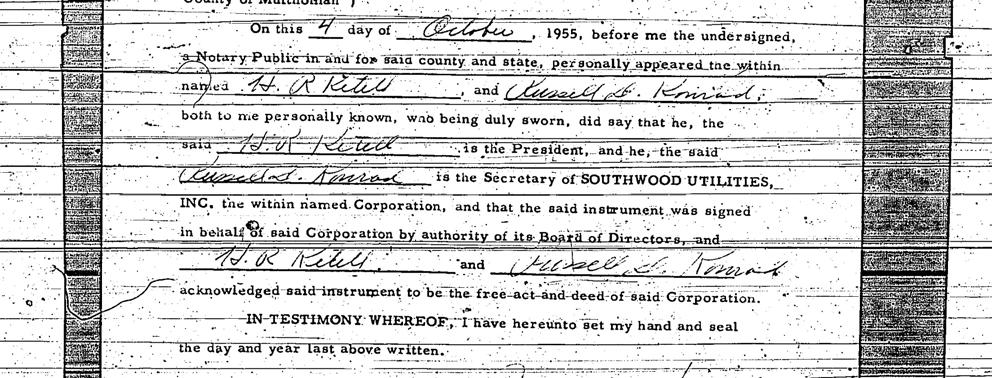 County of Multnomah )
On this 4 day of October, 1955, before me the undersigned,
a Notary Public in and for said county and state, personally appeared the within
named H. R. Ketell, and Russell D. Konrad,
both to me personally known, who being duly sworn, did say that he, the
said H. R. Ketell is the President, and he, the said
Russell D. Konrad is the Secretary of SOUTHWOOD UTILITIES,
INC. the within named Corporation, and that the said instrument was signed
in behalf of said Corporation by authority of its Board of Directors, and
H. R. Ketell and Russell D. Konrad
acknowledged said instrument to be the free act and deed of said Corporation.
IN TESTIMONY WHEREOF, I have hereunto set my hand and seal
the day and year last above written.